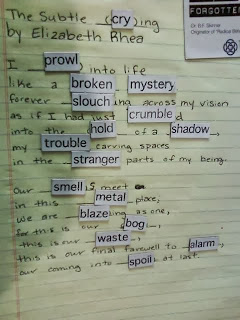 The Subtle (cry)ing
by Elizabeth Rhea
I prowl, into life
like a broken mystery
forever slouching across my vision
as if I had just crumbled
into the hold of a shadow,
my trouble carving spaces
in the stranger parts of my being.
Our smells meet
in this metal place,
we are blazeing as one,
for this is our bog,
this is our waste,
this is our final farewell to alarm,
our coming into spoil at last.
FORGOTTEN
Dr. B.F. Skinner
Originator of "Radical